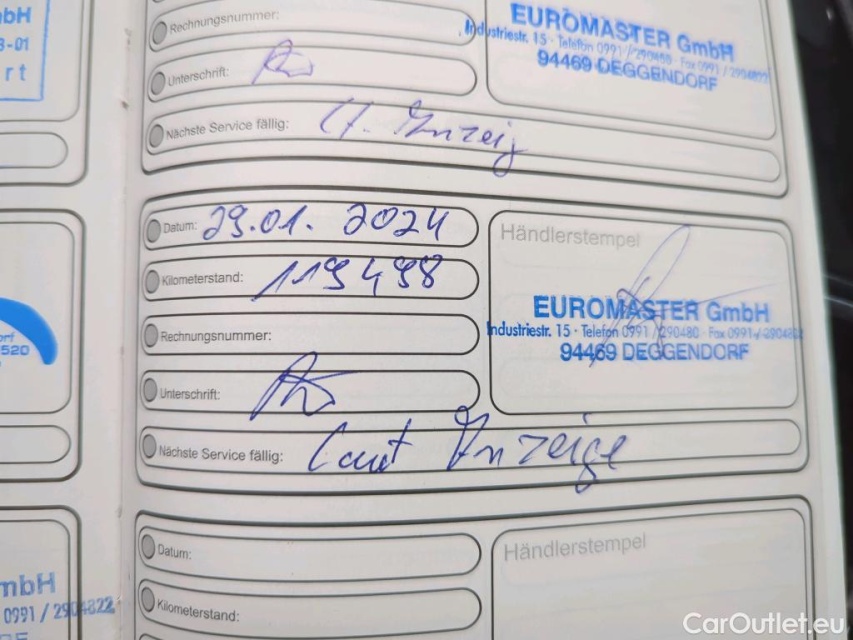 bH
3-01
rt
Rechnungsnummer:
Unterschrift:
Nächste Service fällig: lt. Anzeig
EUROMASTER GmbH
Industriestr. 15 · Telefon 0991 / 290480 · Fax 0991 / 2904822
94469 DEGGENDORF
Datum: 29.01. 2024
Kilometerstand: 119498
Rechnungsnummer:
Unterschrift:
Nächste Service fällig: laut Anzeige
Händlerstempel
EUROMASTER GmbH
Industriestr. 15 · Telefon 0991 / 290480 · Fax 0991 / 2904822
94469 DEGGENDORF
orf
520
mbH
0991 / 2904822
Datum:
Kilometerstand:
Händlerstempel
CarOutlet.eu